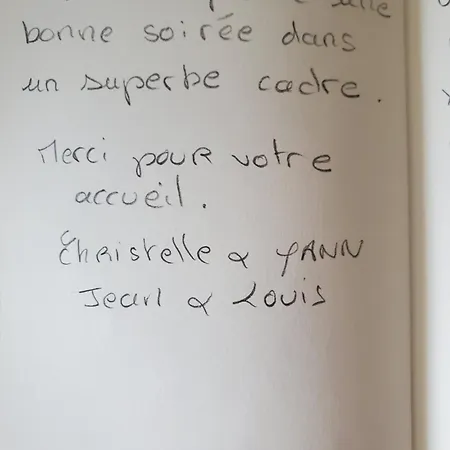 bonne soirée dans
un superbe cadre.
Merci pour votre
accueil.
Christelle & YANN
Jean & Louis